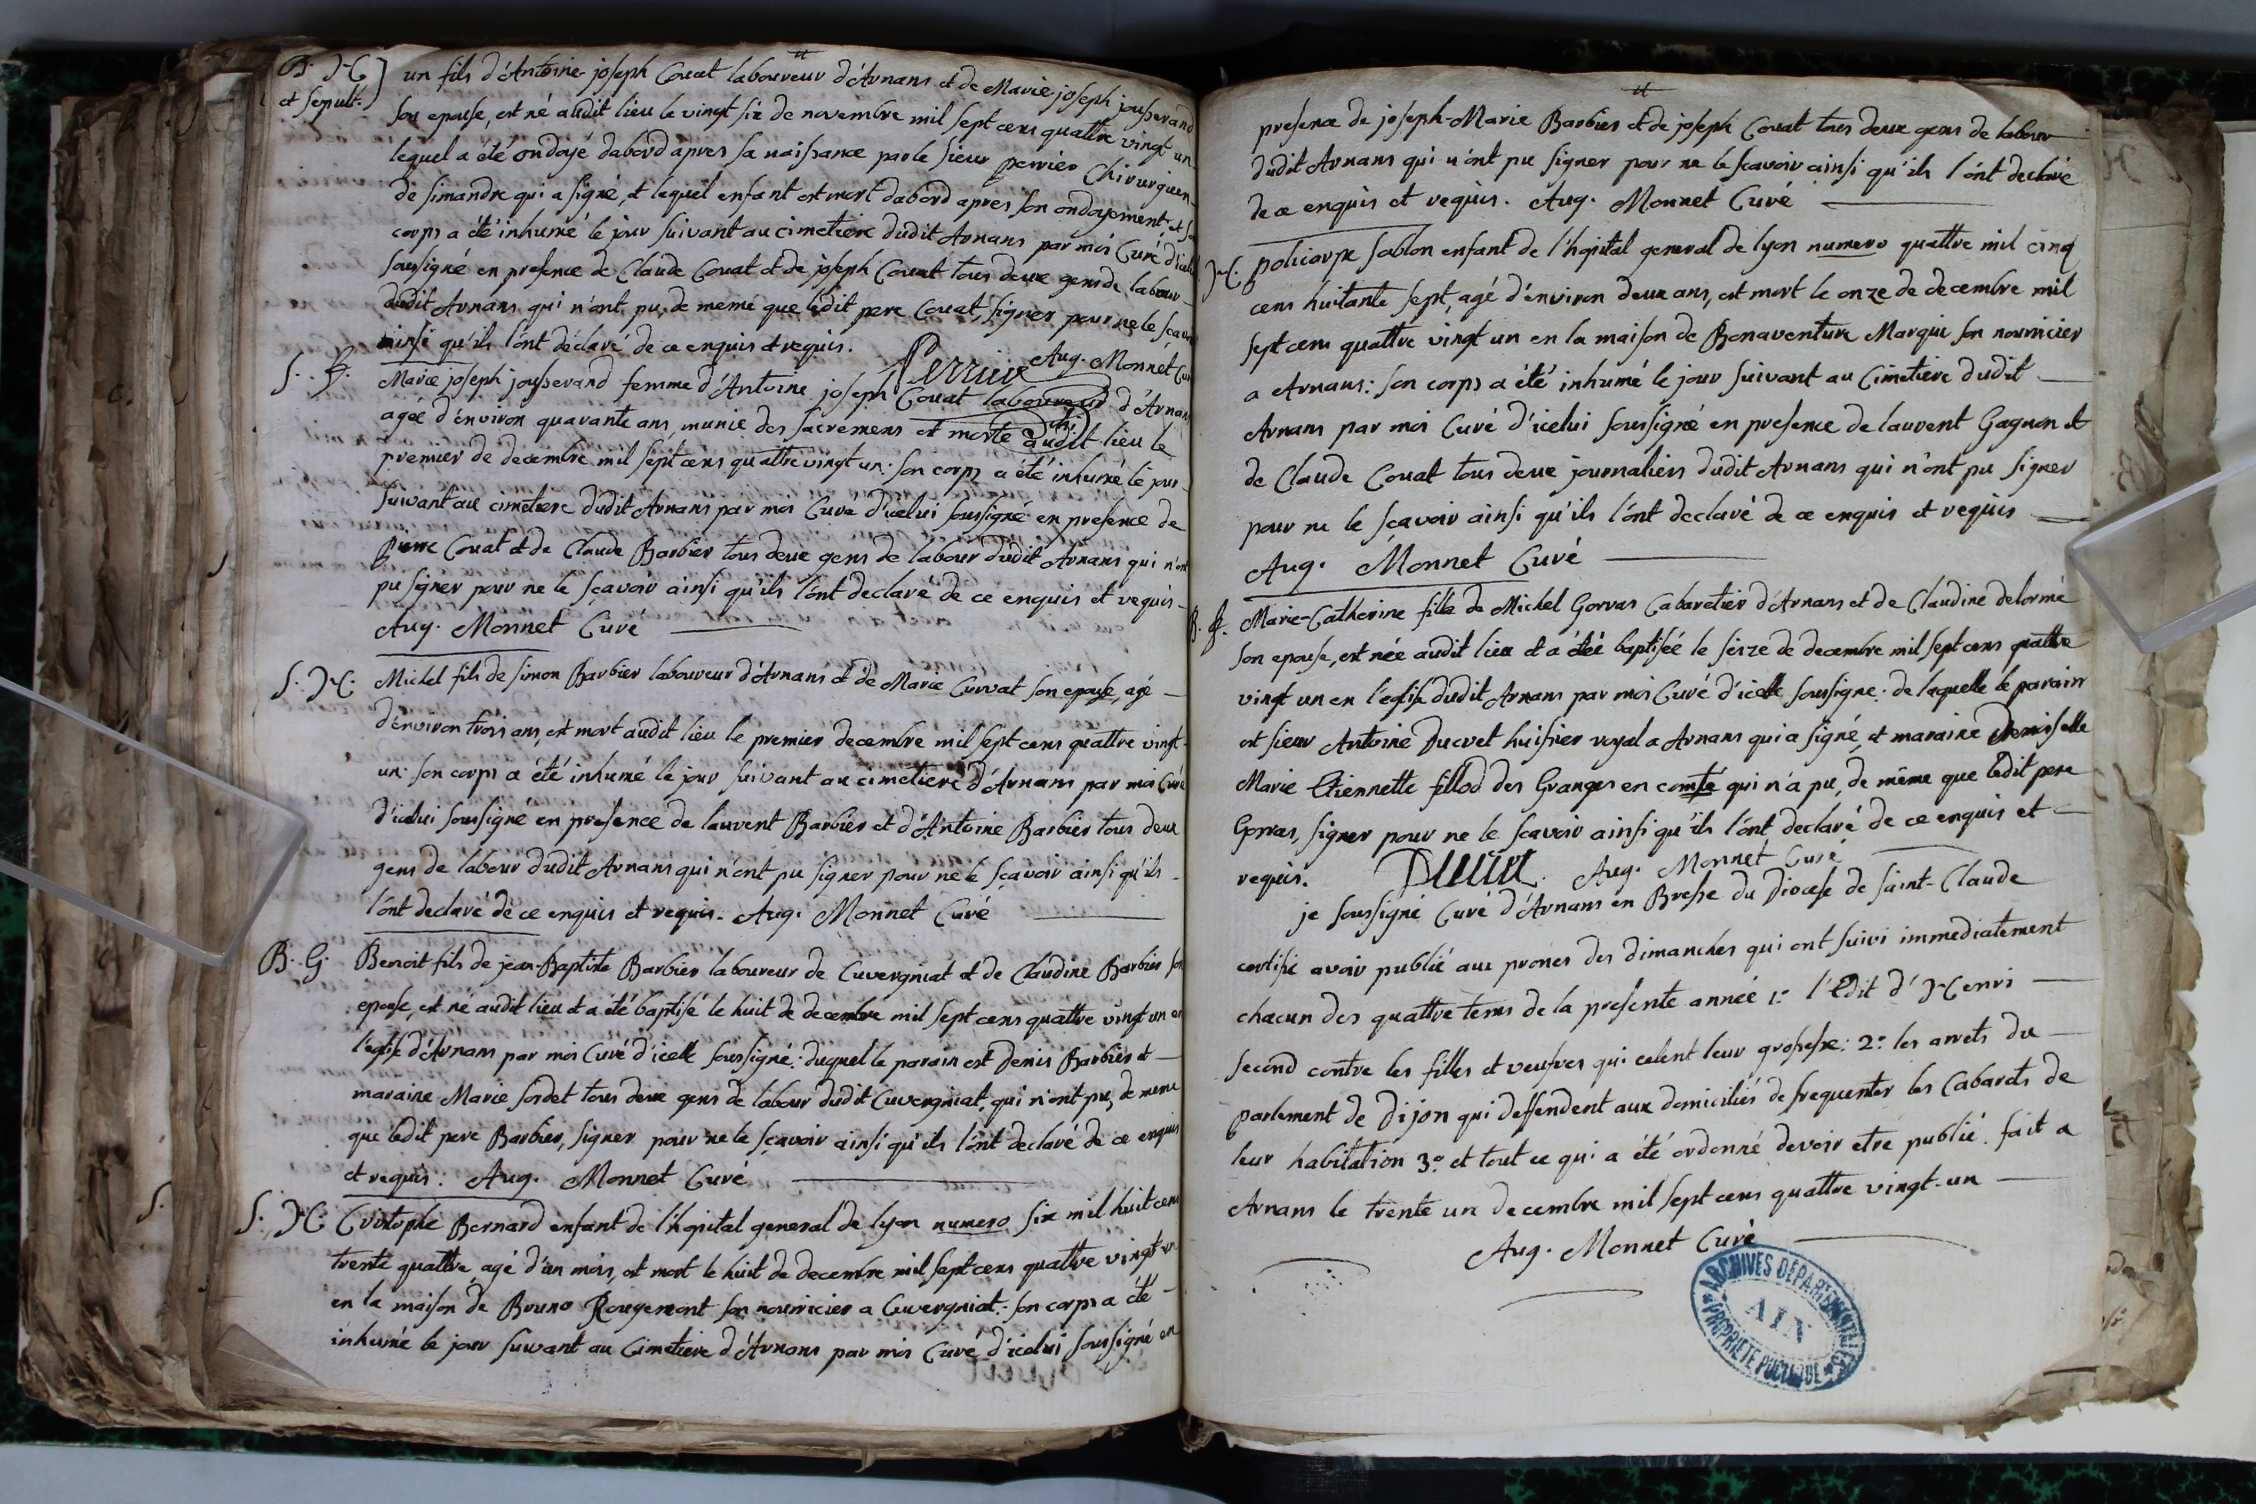 B. H.
et sepult.
un fils d'Antoine joseph Couat laboureur d'Arnans et de Marie joseph jousserand
son epouse, est né audit lieu le vingt six de novembre mil sept cens quattre vingt un
lequel a été ondoyé dabord apres sa naissance par le sieur perrier Chirurgien
de simandre qui a signé, et lequel enfant est mort dabord apres son ondoyement, et son
corps a été inhumé le jour suivant au cimetiere dudit Arnans par moi Curé d'icelui
soussigné en presence de Claude Couat et de joseph Couat tous deux gens de labour
dudit Arnans qui n'ont pu, de meme que ledit pere Couat, signer pour ne le scavoir
ainsi qu'ils l'ont déclaré de ce enquis et requis.
Perrier Aug. Monnet Curé
S. f.
Marie joseph jousserand femme d'Antoine joseph Couat laboureur d'Arnans
agée d'environ quarante ans, munie des sacremens est morte audit lieu le
premier de decembre mil sept cens quattre vingt un: son corps a été inhumé le jour
suivant au cimetiere dudit Arnans par moi Curé d'icelui soussigné en presence de
pierre Couat et de Claude Barbier tous deux gens de labour dudit Arnans qui n'ont
pu signer pour ne le sçavoir ainsi qu'ils l'ont declaré de ce enquis et requis
Aug. Monnet Curé
S. H.
Michel fils de simon Barbier laboureur d'Arnans et de Marie Curvat son epouse, agé
d'environ trois ans, est mort audit lieu le premier decembre mil sept cens quattre vingt
un: son corps a été inhumé le jour suivant au cimetiere d'Arnans par moi Curé
d'icelui soussigné en presence de laurent Barbier et d'Antoine Barbier tous deux
gens de labour dudit Arnans qui n'ont pu signer pour ne le sçavoir ainsi qu'ils
l'ont declaré de ce enquis et requis. Aug. Monnet Curé
B. G.
Benoit fils de jean-Baptiste Barbier laboureur de Cuvergniat et de Claudine Barbier son
epouse, est né audit lieu et a été baptisé le huit de decembre mil sept cens quattre vingt un en
l'eglise d'Arnans par moi Curé d'icelle soussigné: duquel le parain est Denis Barbier et
maraine Marie sordet tous deux gens de labour dudit Cuvergniat, qui n'ont pu, de meme
que ledit pere Barbier, signer pour ne le sçavoir ainsi qu'ils l'ont declaré de ce enquis
et requis: Aug. Monnet Curé
S. H.
Cristophe Bernard enfant de l'hopital general de lyon numero six mil huit cens
trente quattre agé d'un mois, est mort le huit de decembre mil sept cens quattre vingt un
en la maison de Bruno Rougemont son nourricier a Cuvergniat: son corps a été
inhumé le jour suivant au Cimetiere d'Arnans par moi Curé d'icelui soussigné en
presence de joseph-Marie Barbier et de joseph Couat tous deux gens de labour
dudit Arnans qui n'ont pu signer pour ne le scavoir ainsi qu'ils l'ont declaré
de ce enquis et requis. Aug. Monnet Curé
H.
policarpe sablon enfant de l'hopital general de lyon numero quattre mil cinq
cens huitante sept, agé d'environ deux ans, est mort le onze de decembre mil
sept cens quattre vingt un en la maison de Bonaventure Marquie son nourricier
a Arnans: son corps a été inhumé le jour suivant au Cimetiere dudit
Arnans par moi Curé d'icelui soussigné en presence de laurent Gagnon et
de Claude Couat tous deux journaliers dudit Arnans qui n'ont pu signer
pour ne le sçavoir ainsi qu'ils l'ont declaré de ce enquis et requis
Aug. Monnet Curé
B. f.
Marie-Catherine fille de Michel Gorvas Cabaretier d'Arnans et de Claudine delorme
son epouse, est née audit lieu et a été baptisée le seize de decembre mil sept cens quattre
vingt un en l'eglise dudit Arnans par moi Curé d'icelle soussigné: de laquelle le parain
est sieur Antoine Ducret huissier royal a Arnans qui a signé, et maraine Demoiselle
Marie Etiennette fillod des Granges en comté qui n'a pu, de même que ledit pere
Gorvas, signer pour ne le scavoir ainsi qu'ils l'ont declaré de ce enquis et
requis. Ducret. Aug. Monnet Curé
je soussigné Curé d'Arnans en Bresse du Diocese de saint-Claude
certifie avoir publié aux prones des dimanches qui ont suivi immediatement
chacun des quattre tems de la presente année 1.º l'Edit d'Henri
second contre les filles et veufves qui celent leur grossesse: 2.º les arrets du
parlement de Dijon qui deffendent aux domiciliés de frequenter les Cabarets de
leur habitation 3.º et tout ce qui a été ordonné devoir etre publié. fait a
Arnans le trente un decembre mil sept cens quattre vingt-un
Aug. Monnet Curé
ARCHIVES DÉPARTEMENTALES
AIN
PROPRIÉTÉ PUBLIQUE